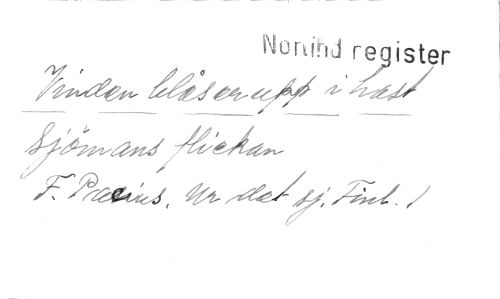 Norlind register
Vinden blåser upp i hast
Sjömans flickan
F. Pacius. Ur det sj. Finl. 1